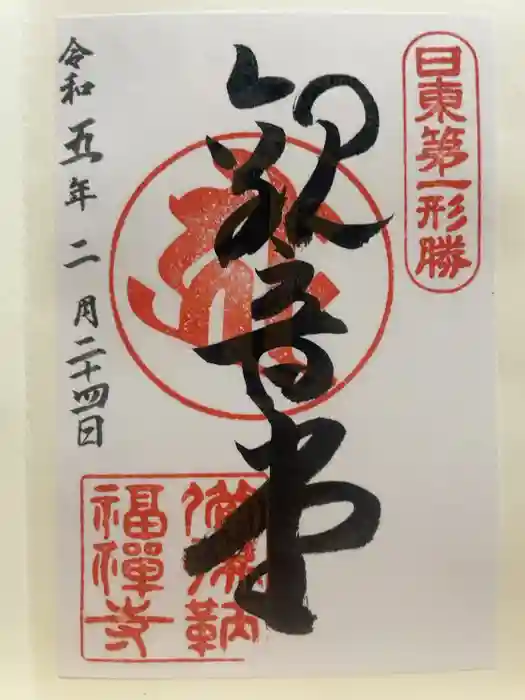 日東第一形勝
観音堂
備後鞆
福禅寺
令和五年二月二十四日